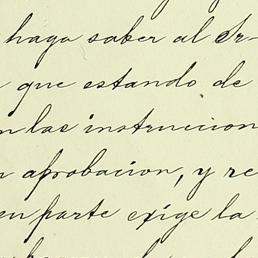 haga saber al Sr-
que estando de
las instruccion
aprobacion, y re
en parte exige la